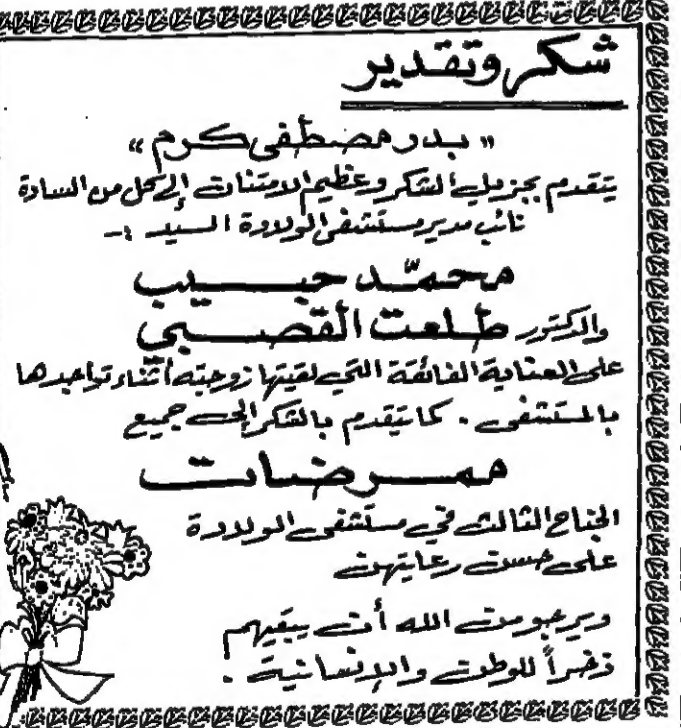 شكر وتقدير
" بدر مصطفى كرم "
يتقدم بجزيل الشكر وعظيم الامتنان إلى كل من السادة
نائب مدير مستشفى الولادة السيد :-
محمّد حبيب
والدكتور طلعت القصبي
على العناية الفائقة التي لقيتها زوجته أثناء تواجدها
بالمستشفى . كما يتقدم بالشكر إلى جميع
ممرضات
الجناح الثالث في مستشفى الولادة
على حسن رعايتهن
ويرجو من الله أن يبقيهم
ذخراً للوطن والإنسانية .